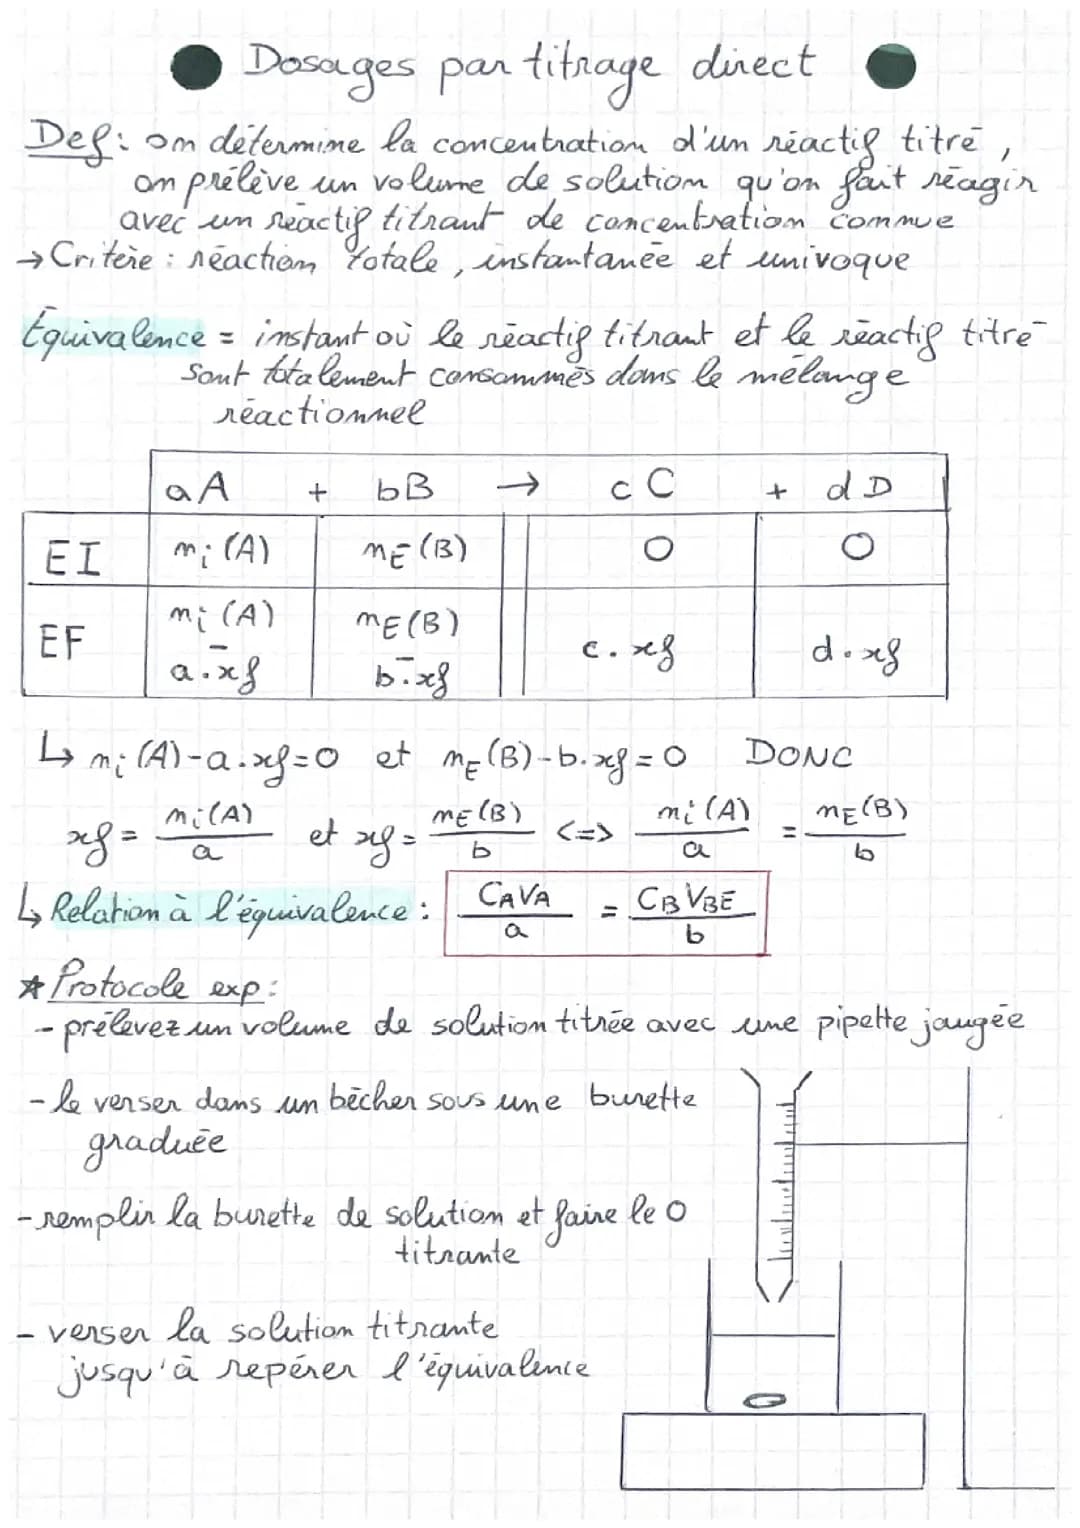 Dosages par titrage direct
Def : on détermine la concentration d'un réactif titré,
on prélève un volume de solution qu'on fait réagir
avec un réactif titrant de concentration connue
→ Critère : réaction totale, instantanée et univoque
Équivalence = instant où le réactif titrant et le réactif titré
sont totalement consommés dans le mélange
réactionnel
aA + bB → cC + dD
EI ni(A) nE(B) 0 0
EF ni(A) - a.xf nE(B) - b.xf c.xf d.xf
↳ ni(A)-a.xf=0 et nE(B)-b.xf=0 DONC
xf = ni(A)/a et xf = nE(B)/b <=> ni(A)/a = nE(B)/b
↳ Relation à l'équivalence : CAVA/a = CBVBE/b
* Protocole exp :
- prélevez un volume de solution titrée avec une pipette jaugée
- le verser dans un bécher sous une burette
graduée
- remplir la burette de solution et faire le 0
titrante
- verser la solution titrante
jusqu'à repérer l'équivalence